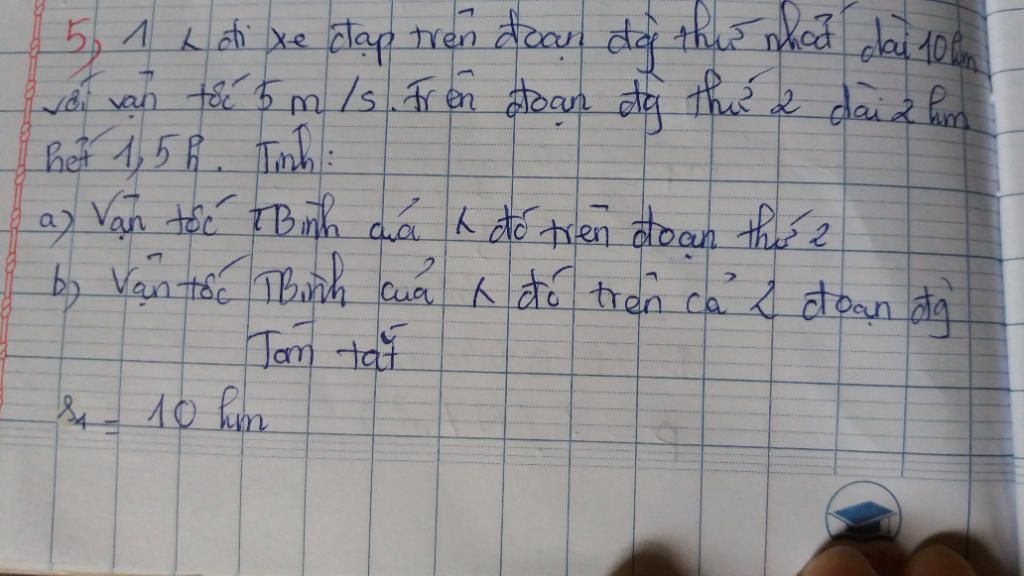 5, 1 < đi xe đạp trên đoạn đg` thứ nhất dài 10km
với vận tốc 5 m/s. Trên đoạn đg` thứ 2 dài 2 km
hết 1,5h. Tính:
a) Vận tốc TBình của < đó trên đoạn thứ 2
b) Vận tốc TBình của < đó trên cả 2 đoạn đg`
Tóm tắt
s1 = 10 km